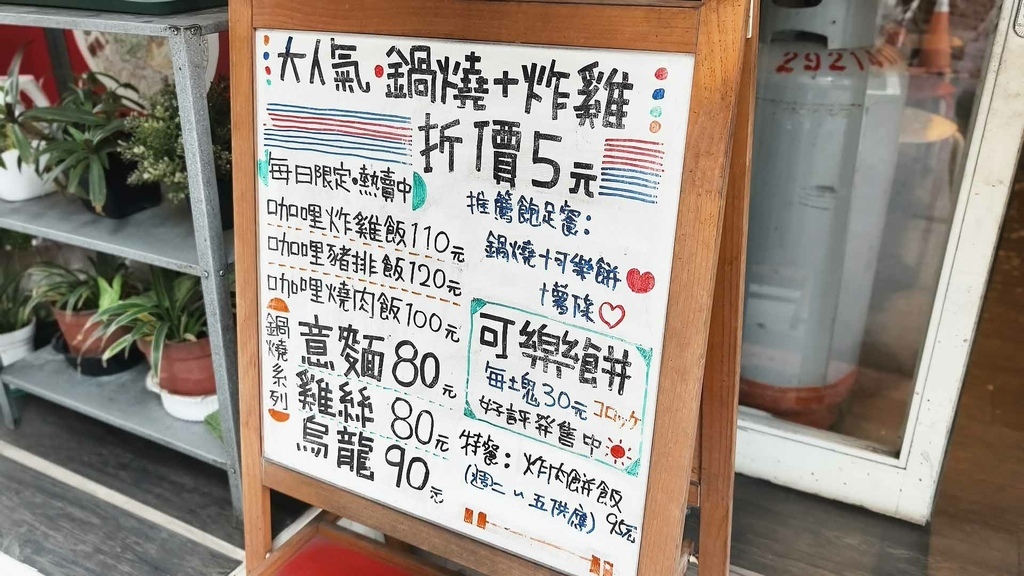 大人氣•鍋燒+炸雞
折價5元
每日限定•熱賣中
咖哩炸雞飯110元
咖哩豬排飯120元
咖哩燒肉飯100元
鍋燒系列
意麵80元
雞絲80元
烏龍90元
推薦飽足餐:
鍋燒+可樂餅
+薯條
可樂餅
每塊30元 コロッケ
好評発售中
特餐: 炸肉餅飯
(週二~五供應) 95元